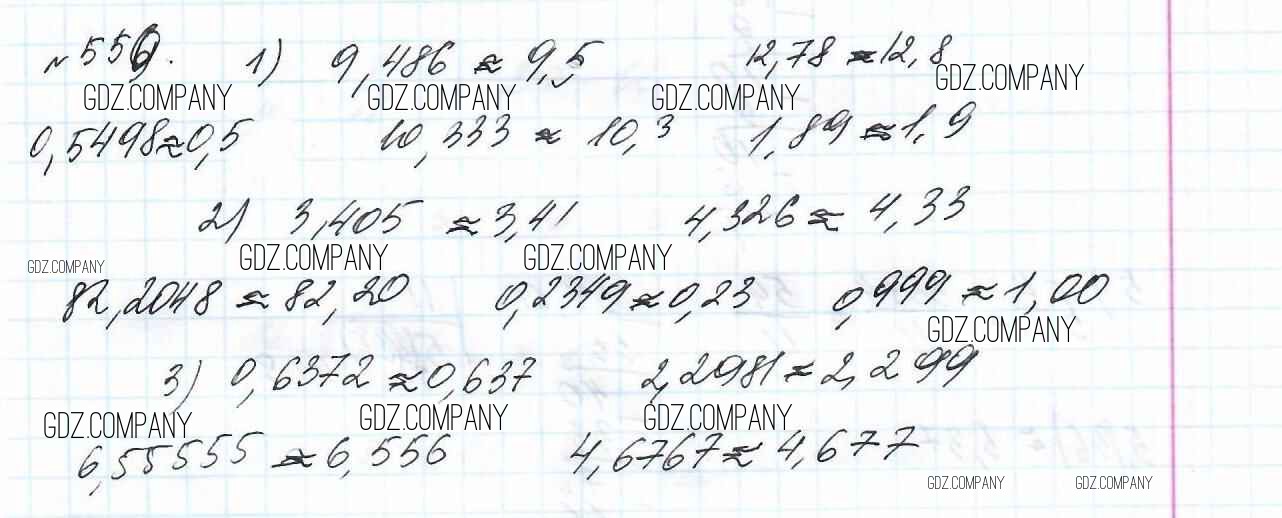 № 559. 1) 9,486 ≈ 9,5 12,78 ≈ 12,8
GDZ.COMPANY GDZ.COMPANY GDZ.COMPANY GDZ.COMPANY
0,5498 ≈ 0,5 10,333 ≈ 10,3 1,89 ≈ 1,9
2) 3,405 ≈ 3,41 4,326 ≈ 4,33
GDZ.COMPANY GDZ.COMPANY GDZ.COMPANY
82,2048 ≈ 82,20 0,2349 ≈ 0,23 0,999 ≈ 1,00
GDZ.COMPANY
3) 0,6372 ≈ 0,637 2,2981 ≈ 2,299
GDZ.COMPANY GDZ.COMPANY GDZ.COMPANY
6,55555 ≈ 6,556 4,6767 ≈ 4,677
GDZ.COMPANY GDZ.COMPANY